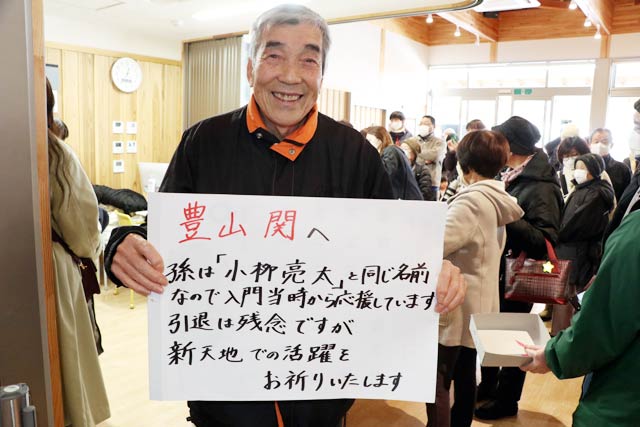 豊山関へ
孫は「小柳亮太」と同じ名前
なので入門当時から応援しています
引退は残念ですが
新天地での活躍を
お祈りいたします